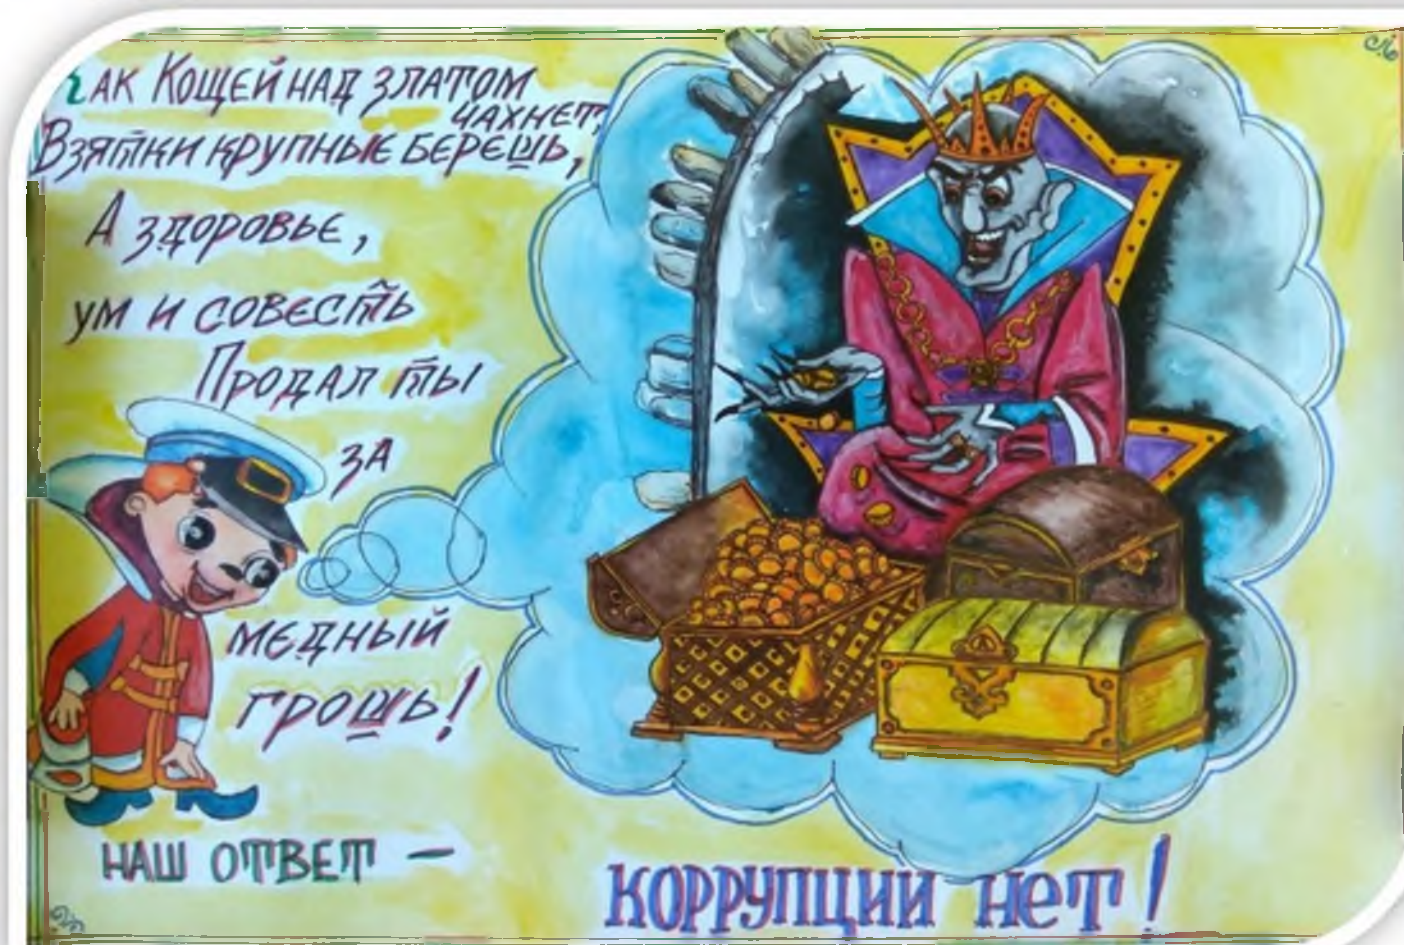 Как Кощей над златом
чахнет,
Взятки крупные берешь,
А здоровье,
ум и совесть
Продал ты
за
медный
грошь!
НАШ ОТВЕТ –
КОРРУПЦИИ НЕТ!